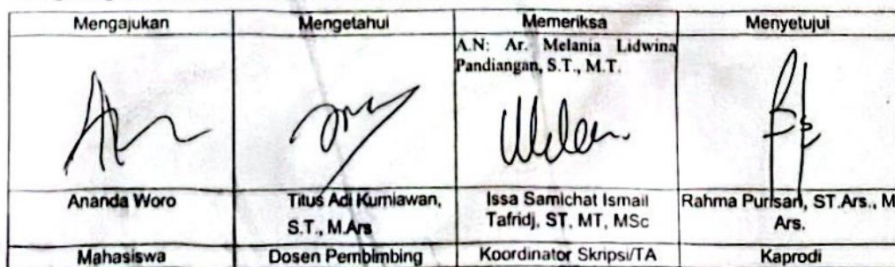 Mengajukan Mengetahui Memeriksa Menyetujui
A.N: Ar. Melania Lidwina
Pandiangan, S.T., M.T.
Ananda Woro Titus Adi Kurniawan, Issa Samichat Ismail Rahma Purisari, ST.Ars., M
S.T., M.Ars Tafridj, ST, MT, MSc Ars.
Mahasiswa Dosen Pembimbing Koordinator Skripsi/TA Kaprodi